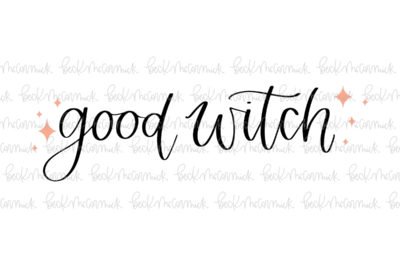 good witch